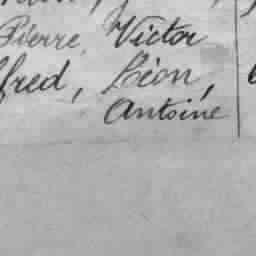 Pierre, Victor
fred, Léon,
Antoine